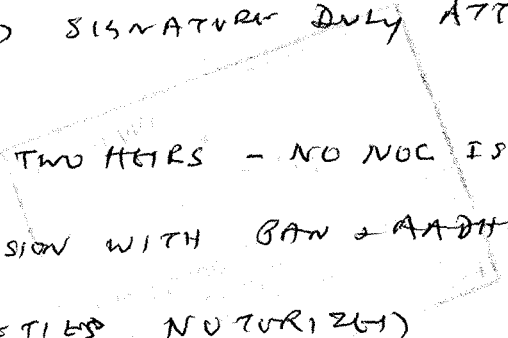 ) SIGNATURE DULY ATT
TWO HEIRS - NO NOC IS
SION WITH PAN & AADH
ETIES NOTURIZED)